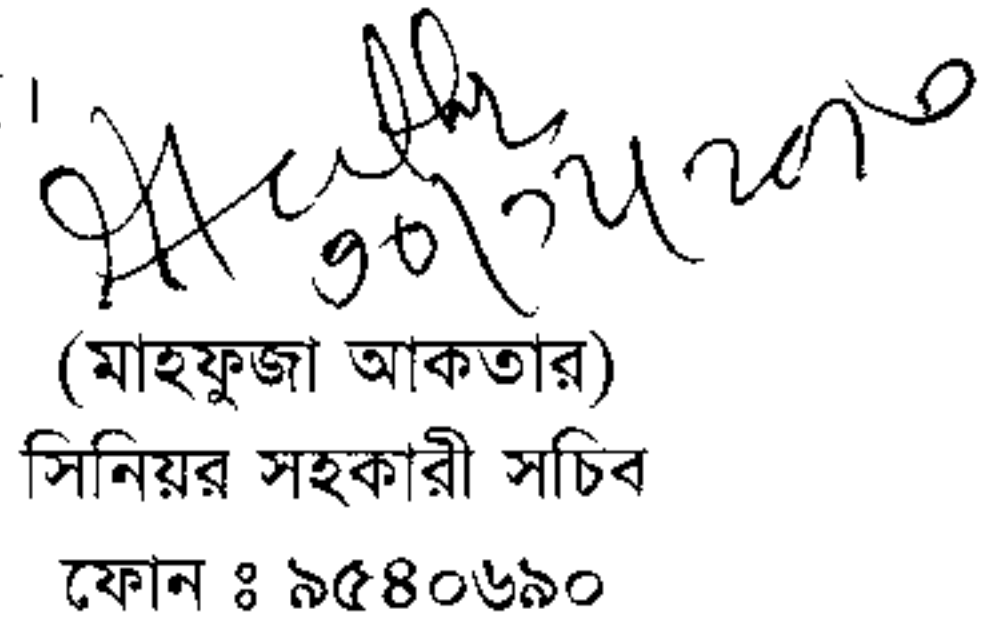 ।
(মাহফুজা আকতার)
সিনিয়র সহকারী সচিব
ফোন ঃ ৯৫৪০৬৯০